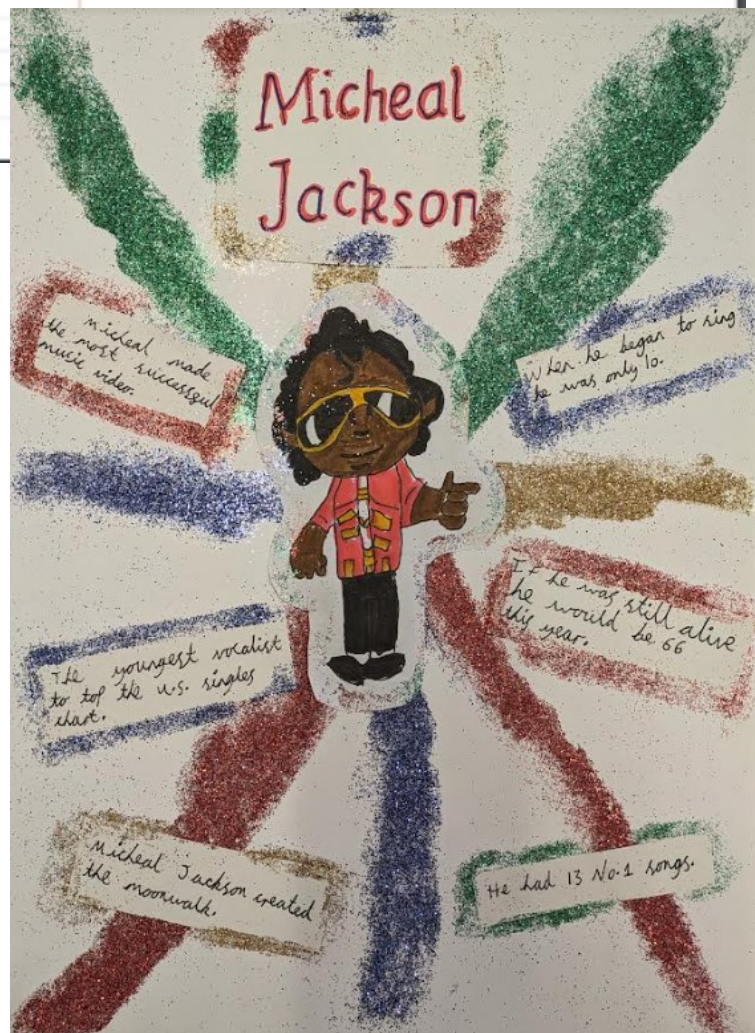 Micheal
Jackson
Micheal made
the most successful
music video.
When he began to sing
he was only 10.
If he was still alive
he would be 66
this year.
The youngest vocalist
to top the u.s. singles
chart.
Micheal Jackson created
the moonwalk.
He had 13 No.1 songs.